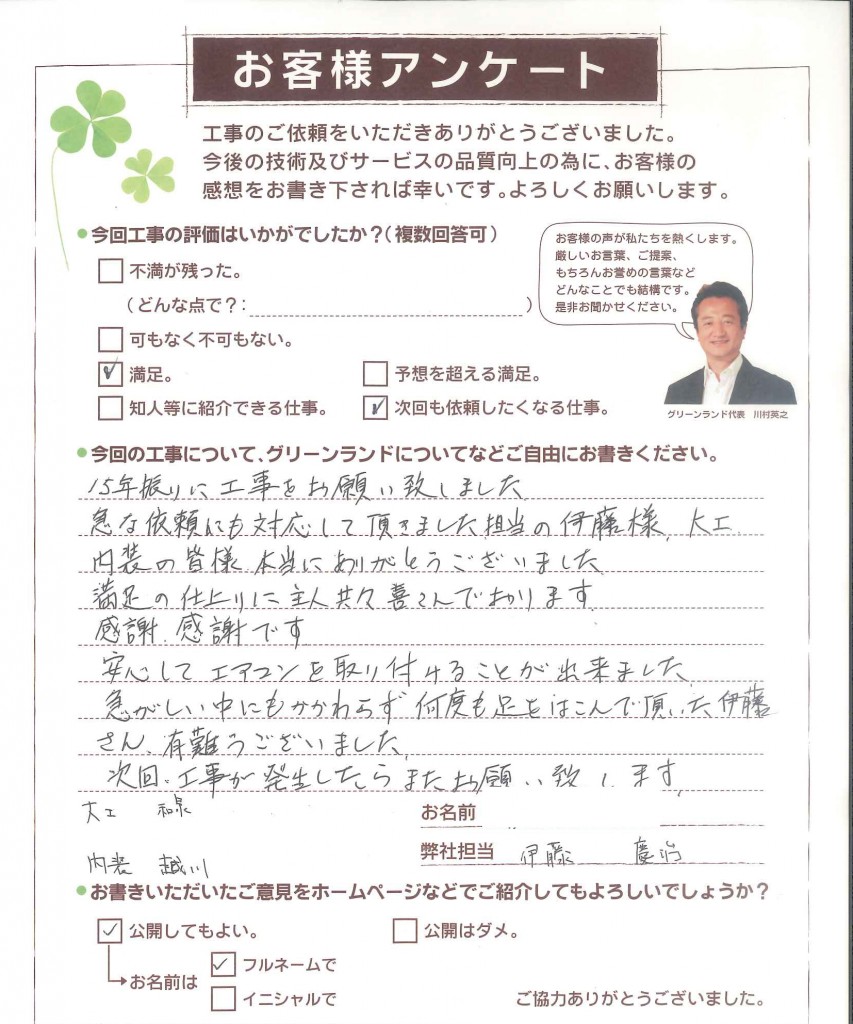 お客様アンケート
工事のご依頼をいただきありがとうございました。
今後の技術及びサービスの品質向上の為に、お客様の
感想をお書き下されば幸いです。よろしくお願いします。
●今回工事の評価はいかがでしたか?(複数回答可)
不満が残った。
(どんな点で?: )
可もなく不可もない。
満足。
予想を超える満足。
知人等に紹介できる仕事。
次回も依頼したくなる仕事。
お客様の声が私たちを熱くします。
厳しいお言葉、ご提案、
もちろんお誉めの言葉など
どんなことでも結構です。
是非お聞かせください。
グリーンランド代表 川村英之
●今回の工事について、グリーンランドについてなどご自由にお書きください。
15年振りに工事をお願い致しました
急な依頼にも対応して頂きました担当の伊藤様、大工、
内装の皆様 本当にありがとうございました
満足の仕上りに主人共々喜こんでおります
感謝 感謝です
安心してエアコンを取り付けることが出来ました
急がしい中にもかかわらず何度も足をはこんで頂いた伊藤
さん、有難うございました
次回工事が発生したらまたお願い致します
大工 和泉
お名前
弊社担当 伊藤 慶治
内装 越川
●お書きいただいたご意見をホームページなどでご紹介してもよろしいでしょうか?
公開してもよい。
公開はダメ。
お名前は
フルネームで
イニシャルで
ご協力ありがとうございました。